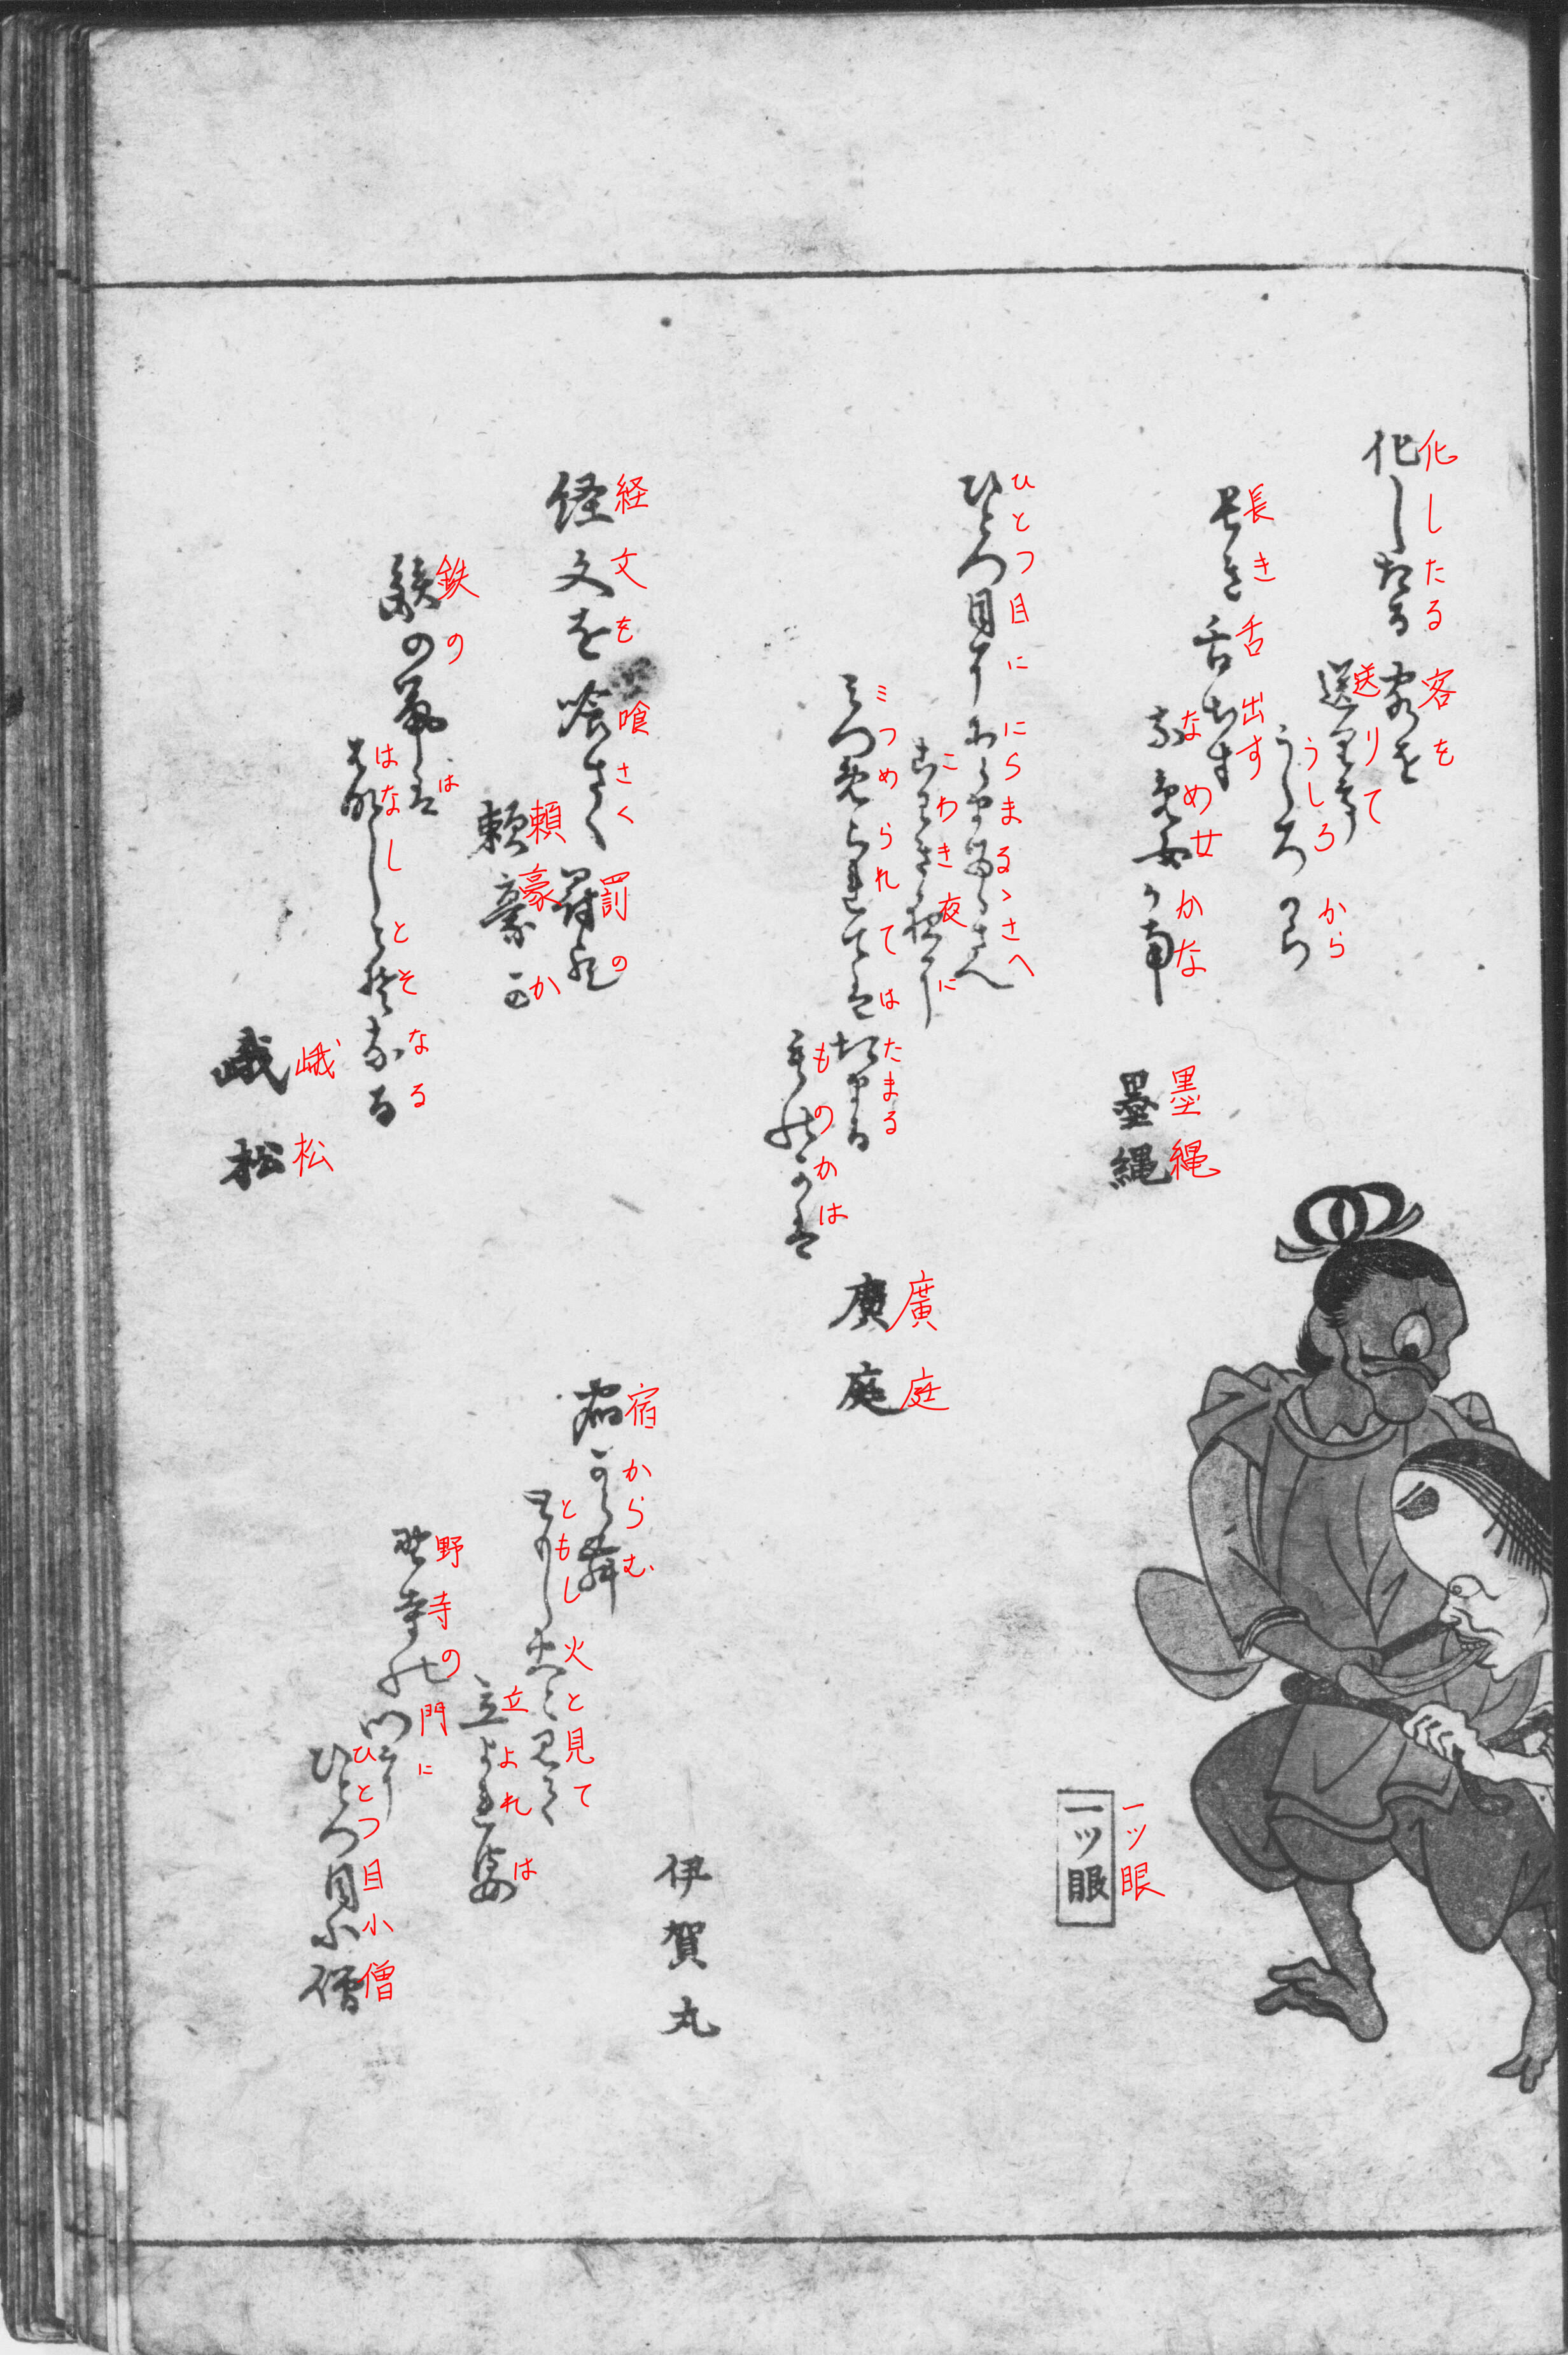 化したる客を
送りて
うしろから
長き舌出す
なめ女かな
墨縄
ひとつ目に にらまるゝさへ
こわき夜に
ミつめられては たまる
ものかは
廣庭
一ツ眼
経文を喰さく罰の
頼豪か
鉄の鼠は
はなしとそなる
峨松
伊賀丸
宿からむ
ともし火と見て
立よれは
野寺の門に
ひとつ目小僧